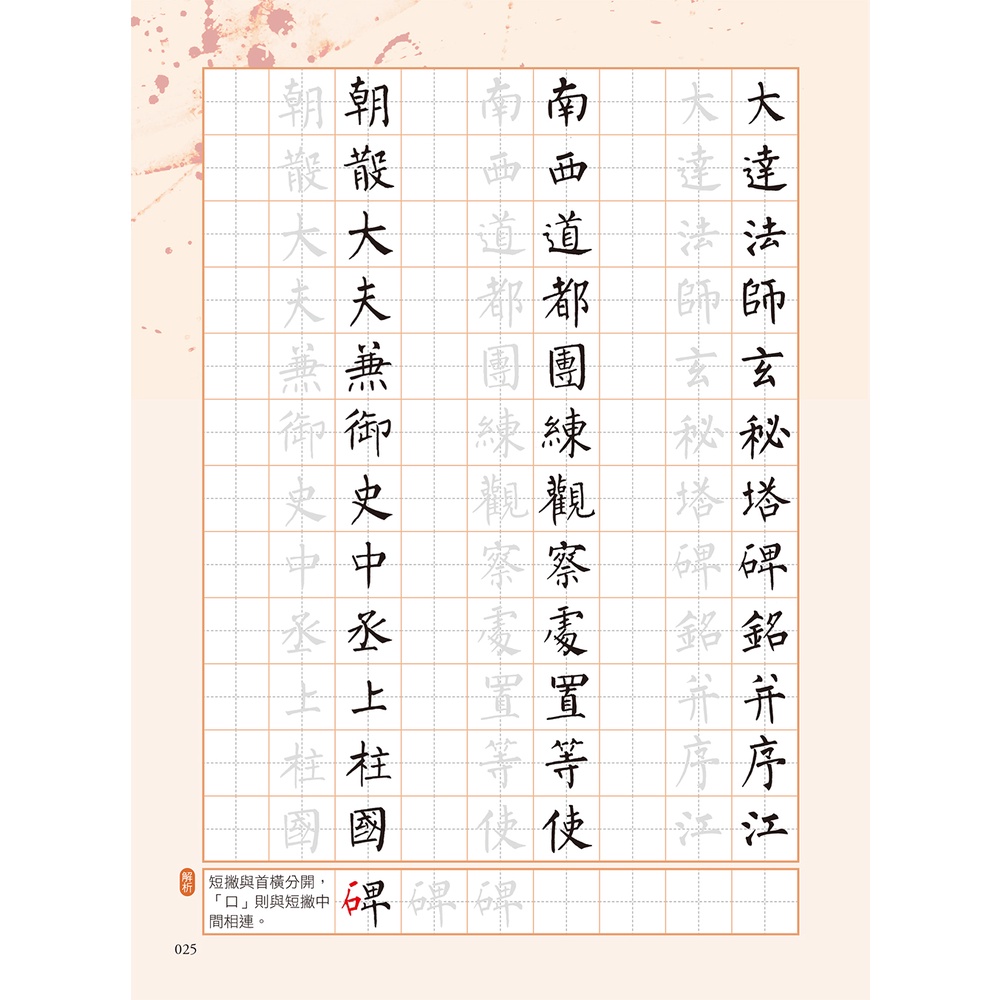 大達法師玄秘塔碑銘并序江
大達法師玄秘塔碑銘并序江
南西道都團練觀察處置等使
南西道都團練觀察處置等使
朝散大夫兼御史中丞上柱國
朝散大夫兼御史中丞上柱國
解析
短撇與首橫分開，
「口」則與短撇中
間相連。
碑 碑 碑
025